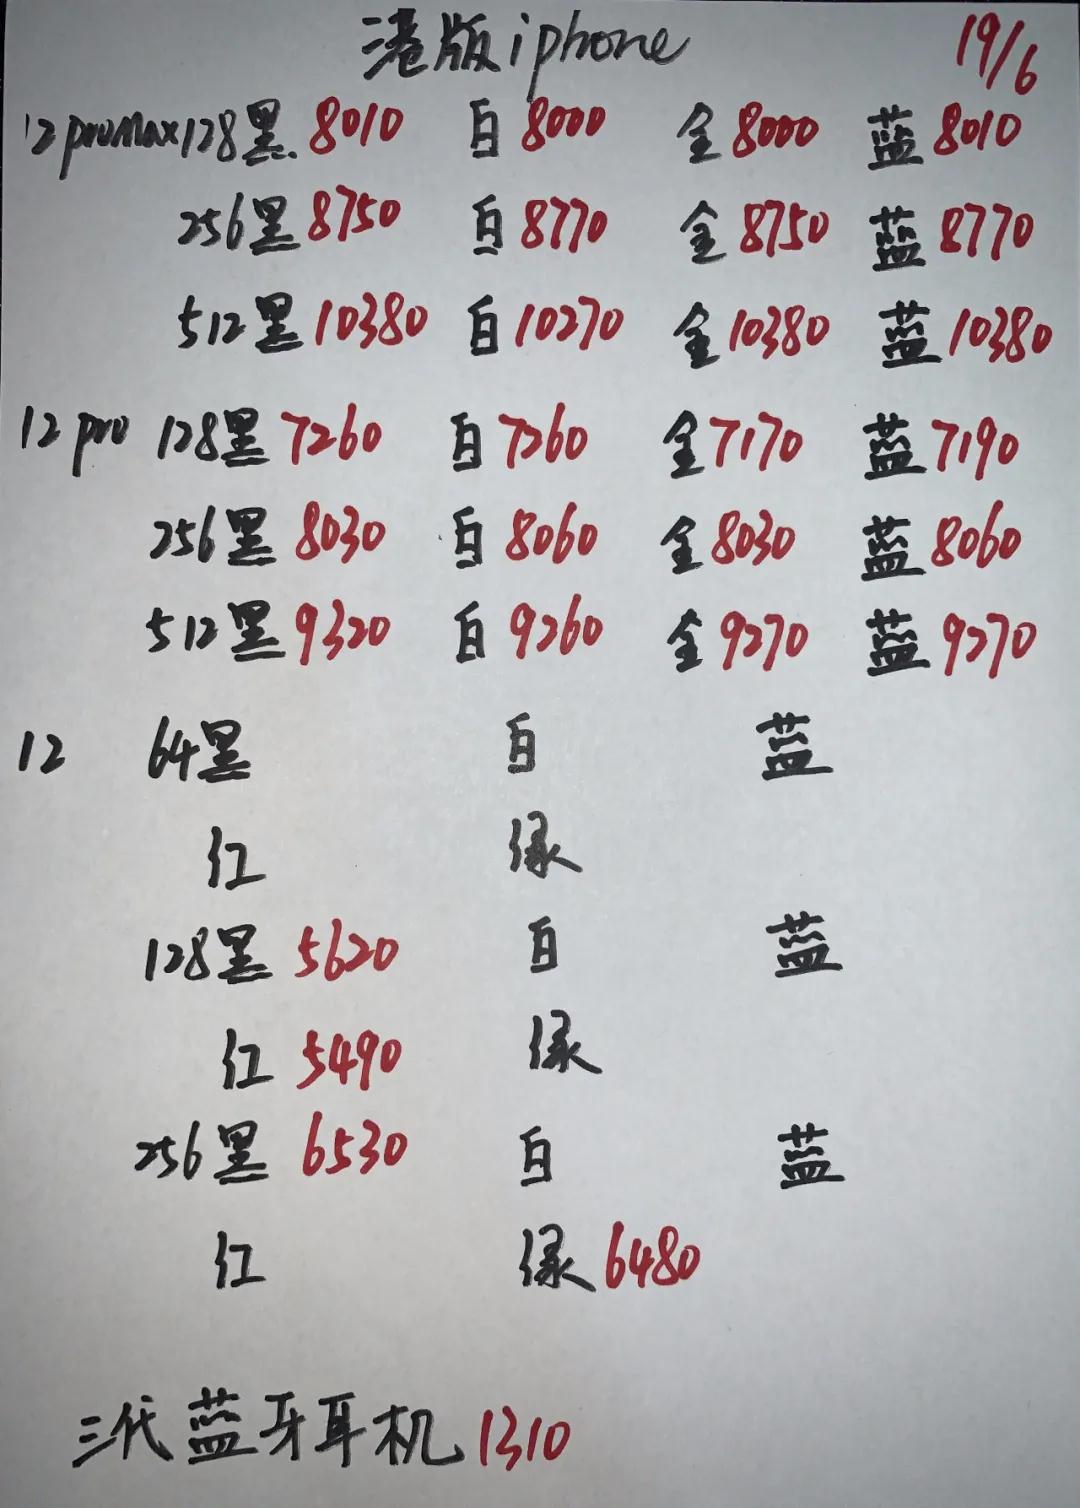 港版iphone 19/6
12promax128黑.8010 白8000 金8000 蓝8010
256黑8750 白8770 金8750 蓝8770
512黑10380 白10270 金10380 蓝10380
12pro 128黑7260 白7260 金7170 蓝7190
256黑8030 白8060 金8030 蓝8060
512黑9320 白9260 金9270 蓝9270
12 64黑 白 蓝
红 绿
128黑5620 白 蓝
红5490 绿
256黑6530 白 蓝
红 绿6480
三代蓝牙耳机1310